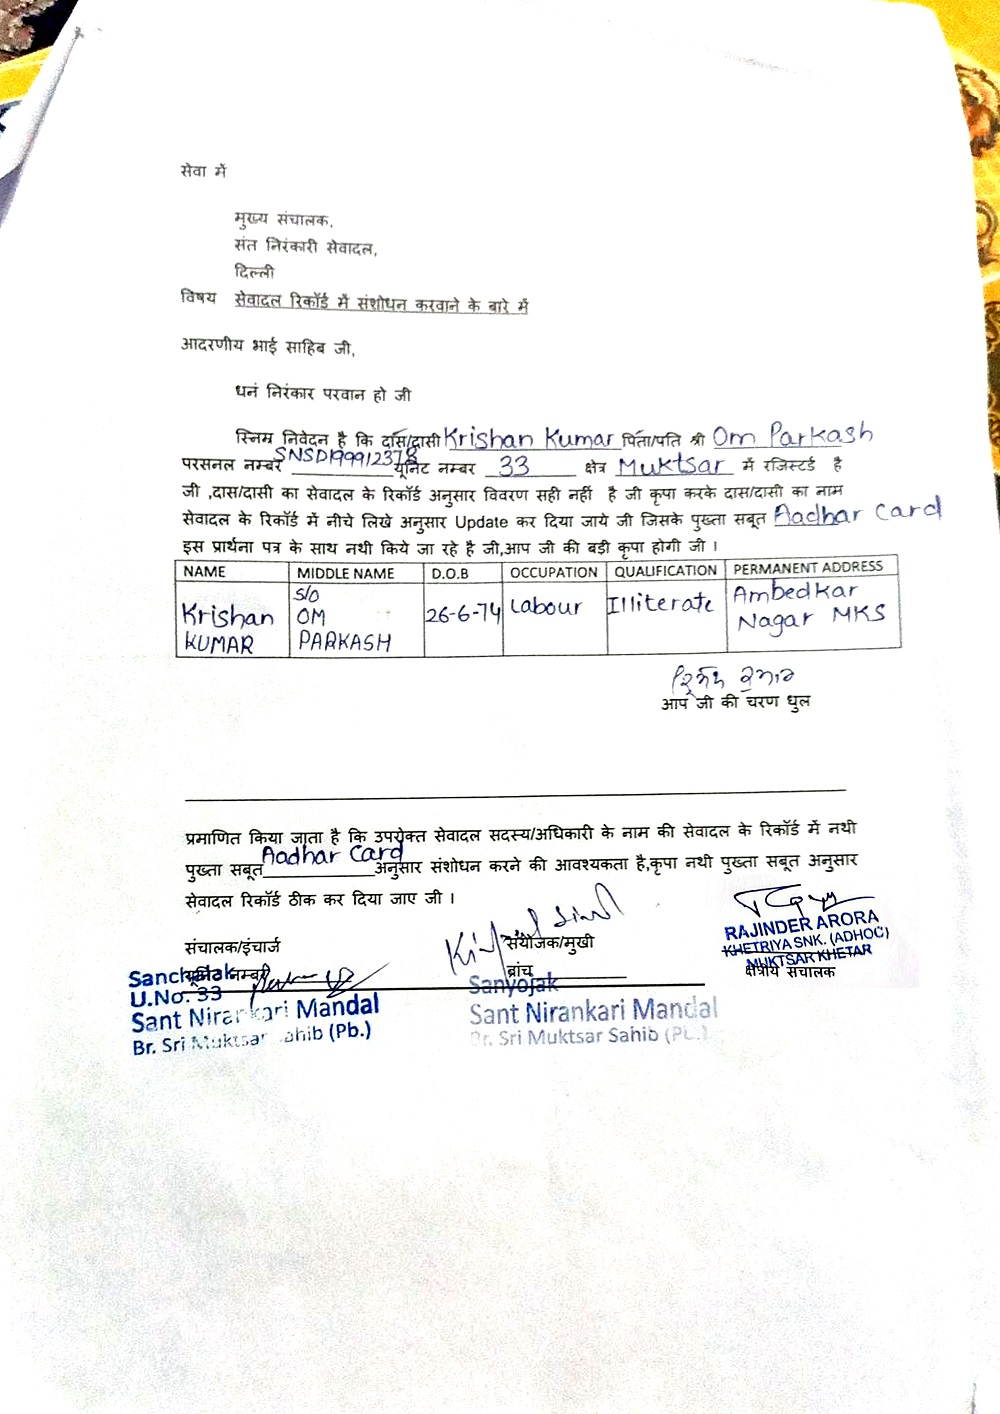 सेवा में
मुख्य संचालक,
संत निरंकारी सेवादल,
दिल्ली
विषय सेवादल रिकॉर्ड में संशोधन करवाने के बारे में
आदरणीय भाई साहिब जी,
धनं निरंकार परवान हो जी
स्निम्र निवेदन है कि दास/दासी Krishan Kumar पिता/पति श्री Om Parkash
परसनल नम्बर SNSD199912378 यूनिट नम्बर 33 क्षेत्र Muktsar में रजिस्टर्ड है
जी ,दास/दासी का सेवादल के रिकॉर्ड अनुसार विवरण सही नहीं है जी कृपा करके दास/दासी का नाम
सेवादल के रिकॉर्ड में नीचे लिखे अनुसार Update कर दिया जाये जी जिसके पुख्ता सबूत Aadhar Card
इस प्रार्थना पत्र के साथ नथी किये जा रहे है जी,आप जी की बड़ी कृपा होगी जी ।
NAME MIDDLE NAME D.O.B OCCUPATION QUALIFICATION PERMANENT ADDRESS
Krishan KUMAR S/O OM PARKASH 26-6-74 Labour Illiterate Ambedkar Nagar MKS
आप जी की चरण धुल
प्रमाणित किया जाता है कि उपरोक्त सेवादल सदस्य/अधिकारी के नाम की सेवादल के रिकॉर्ड में नथी
पुख्ता सबूत Aadhar Card अनुसार संशोधन करने की आवश्यकता है,कृपा नथी पुख्ता सबूत अनुसार
सेवादल रिकॉर्ड ठीक कर दिया जाए जी ।
संचालक/इंचार्ज संयोजक/मुखी RAJINDER ARORA
KHETRIYA SNK. (ADHOC)
MUKTSAR KHETAR
यूनिट नम्बर ब्रांच क्षेत्रीय संचालक
Sanchalak
U.No. 33
Sant Nirankari Mandal
Br. Sri Muktsar Sahib (Pb.)
Sanyojak
Sant Nirankari Mandal
Br. Sri Muktsar Sahib (Pb.)